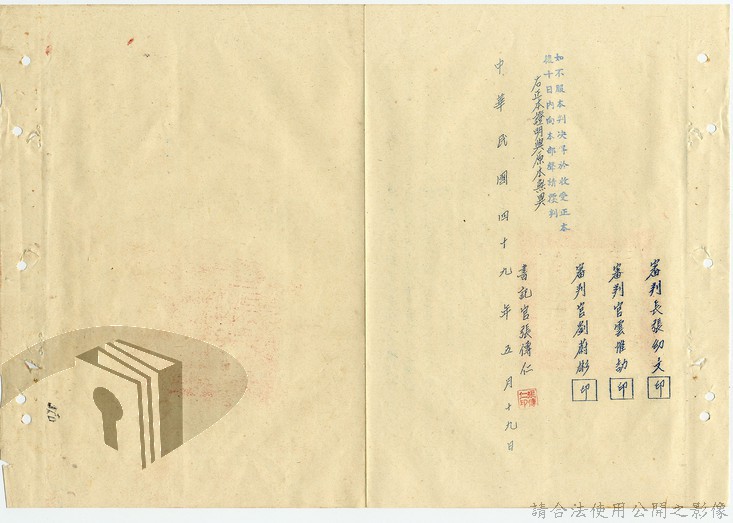 審判長張幼文 印
審判官雲惟劭 印
審判官劉蔚彬 印
如不服本判決得於收受正本
後十日內向本部聲請覆判
右正本證明與原本無異
書記官張傳仁
中華民國四十九年五月十九日
請合法使用公開之影像